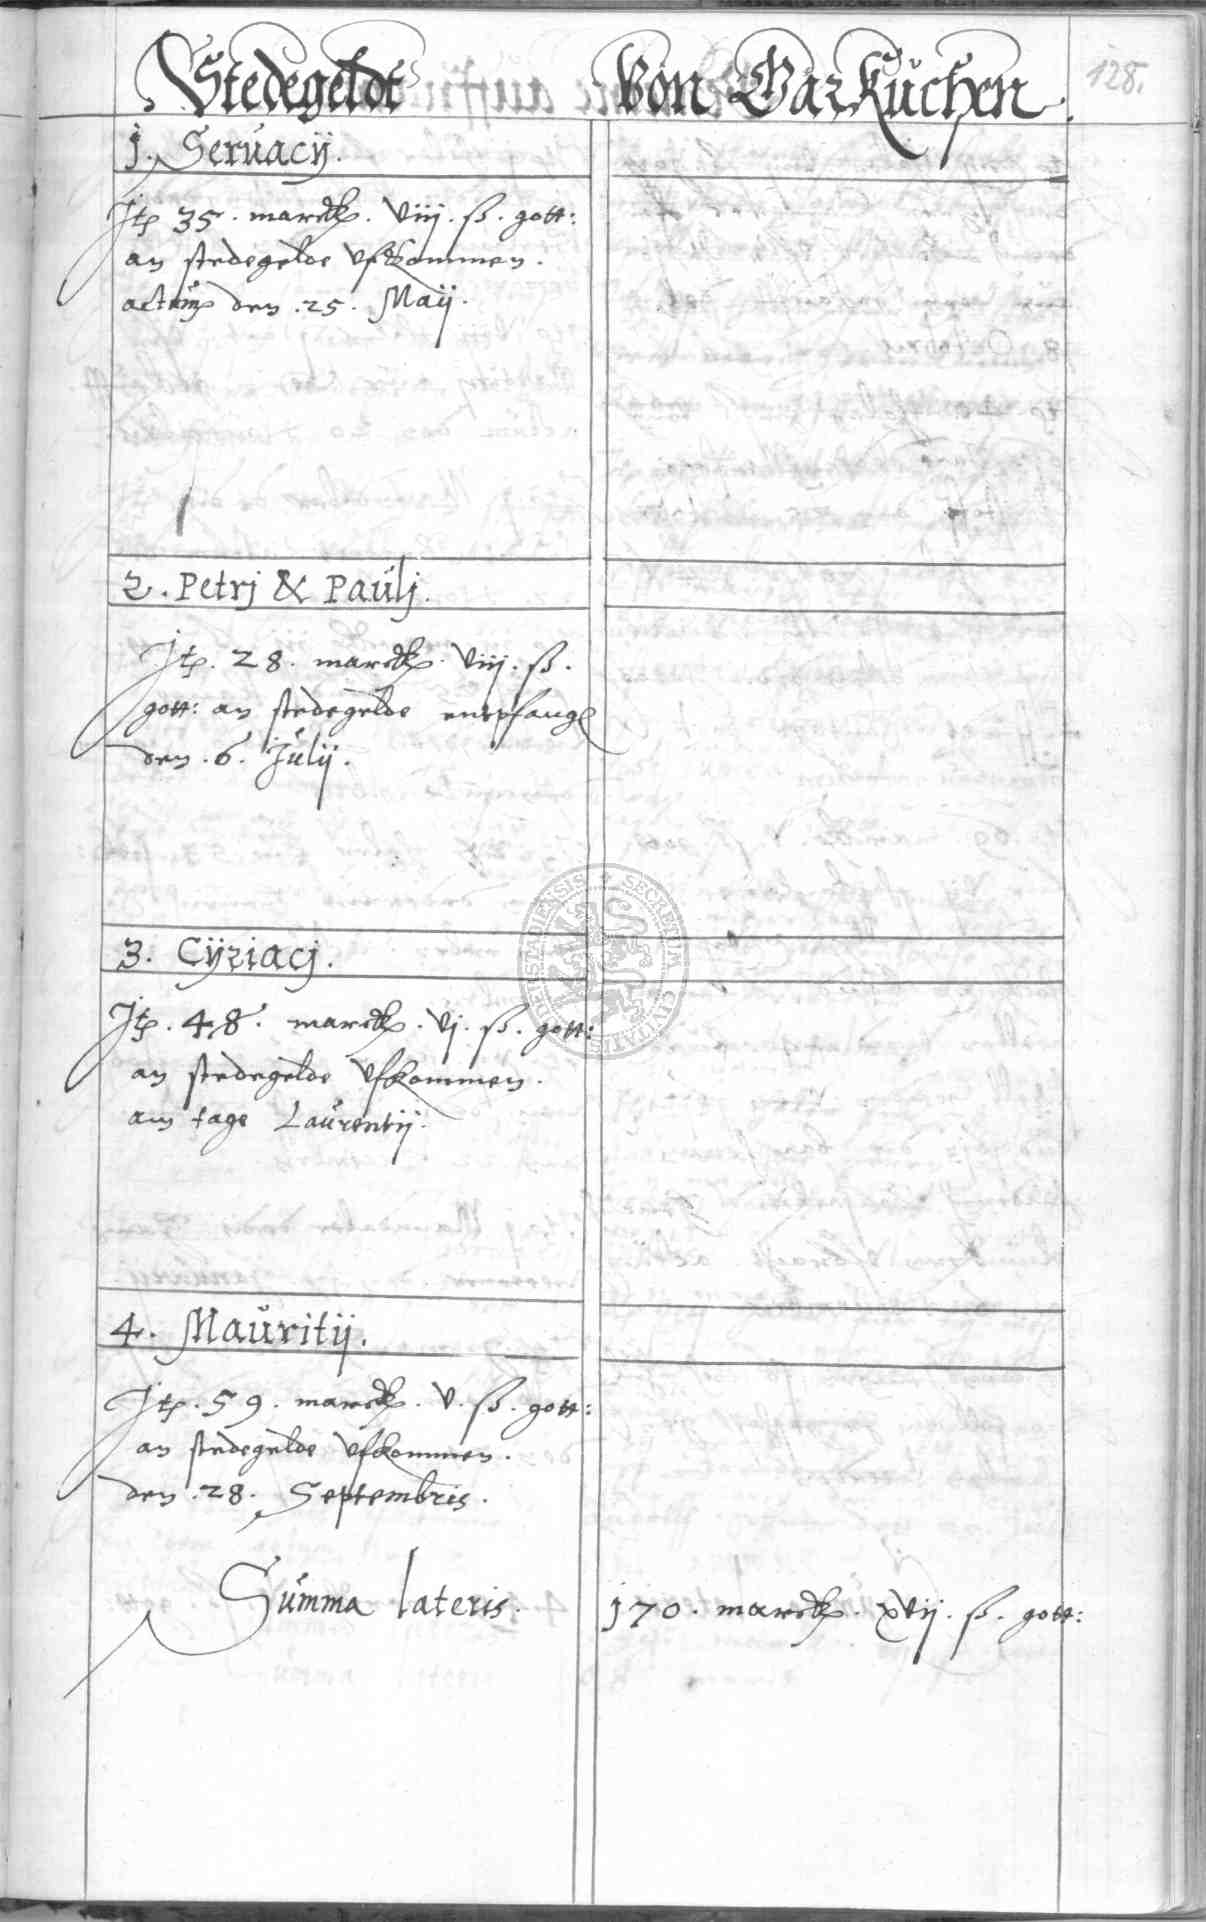 Stedegeldt Von Garküchen.
128.
1. Seruacij.
Itp 35. marck. viij. ß. gott:
an stedegelde vfkommen.
actum den .25. Maij.
2. Petrj & Paulj.
Itp. 28. marck. viij. ß.
gott: an stedegelde entpfang
den .6. Julij.
3. Cijriacj.
Itp. 48. marck. vj. ß. gott:
an stedegelde vfkommen.
am tage Laurentij.
4. Mauritij.
Itp. 59. marck. v. ß. gott:
an stedegelde vfkommen.
den .28. Septembris.
Summa lateris. 170. marck. xvij. ß. gott:
SECRETUM CIVITATIS